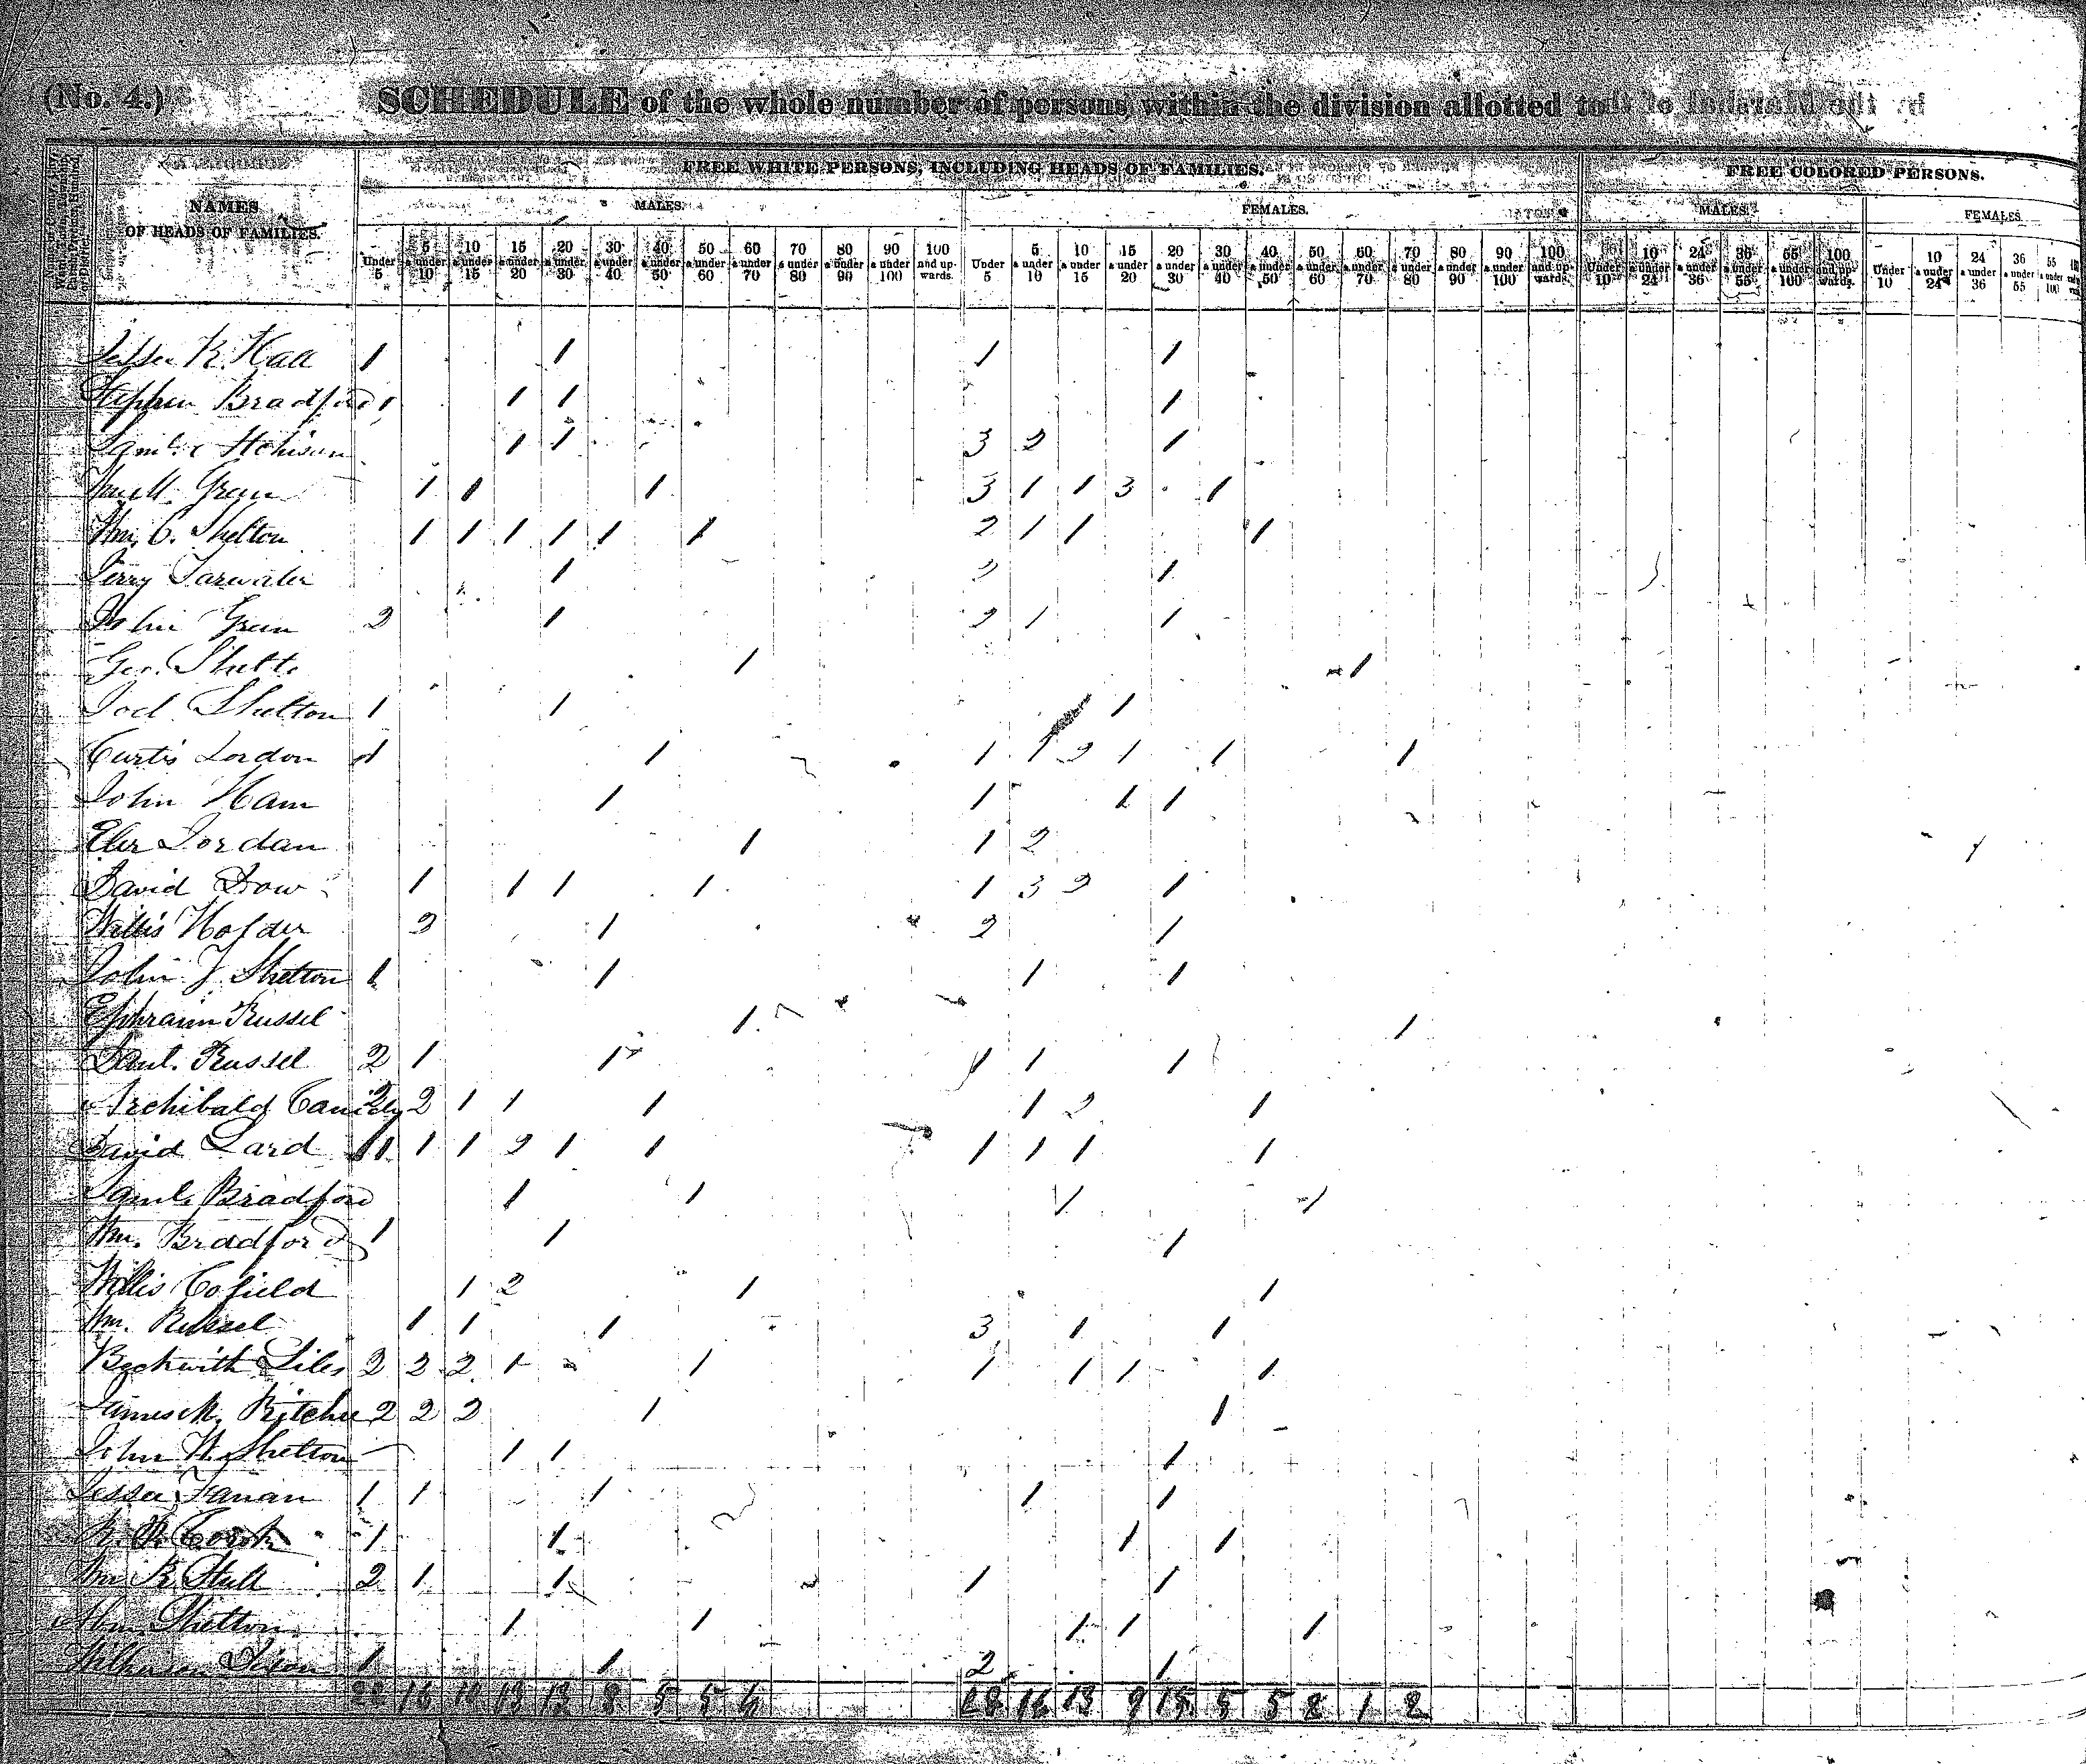 (No. 4.) SCHEDULE of the whole number of persons within the division allotted to by the Marshal of
FREE WHITE PERSONS, INCLUDING HEADS OF FAMILIES. FREE COLORED PERSONS.
NAMES OF HEADS OF FAMILIES. MALES. FEMALES. MALES. FEMALES.
Under 5 5 & under 10 10 & under 15 15 & under 20 20 & under 30 30 & under 40 40 & under 50 50 & under 60 60 & under 70 70 & under 80 80 & under 90 90 & under 100 100 and upwards. Under 5 5 & under 10 10 & under 15 15 & under 20 20 & under 30 30 & under 40 40 & under 50 50 & under 60 60 & under 70 70 & under 80 80 & under 90 90 & under 100 100 and upwards. Under 10 10 & under 24 24 & under 36 36 & under 55 55 & under 100 100 and upwards. Under 10 10 & under 24 24 & under 36 36 & under 55 55 & under 100
K. Hall 1 1 1 1
Stephen Bradford 1 1 1 1
Saml. Atchison 1 1 3 2 1
Green 1 1 1 3 1 1 3 1
Wm. C. Shelton 1 1 1 1 1 1 2 1 1 1
Jerry Tarwater 1 2 1
John Green 2 1 2 1 1
Geo. Shutts 1 1
Joel Shelton 1 1 1
Curtis Jordon 1 1 1 1 2 1 1 1
John Ham 1 1 1 1
Eber Jordan 1 1 2
David Dow 1 1 1 1 1 3 2 1
Willis Holder 2 1 2 1
John J. Shelton 1 1 1 1
Ephraim Russel 1 1
Danl. Russel 2 1 1 1 1 1
Archibald Canidy 2 2 1 1 1 1 2 1
David Lard 1 1 1 2 1 1 1 1 1 1
Saml. Bradford 1 1 1 1
Wm. Bradford 1 1 1
Willis Cofield 1 2 1 1
Wm. Russel 1 1 1 3 1 1
Beckwith Liles 2 2 2 1 1 1 1 1 1
James M. Ritchie 2 2 2 1 1
John W. Shelton 1 1 1
Jesse Fanan 1 1 1 1 1
1 1 1 1
Wm. B. Stull 2 1 1 1 1
Abm. Shelton 1 1 1 1 1
Wilkerson Dixon 1 1 2 1
22 16 10 13 13 8 5 5 28 16 13 9 5 5 2 1 2